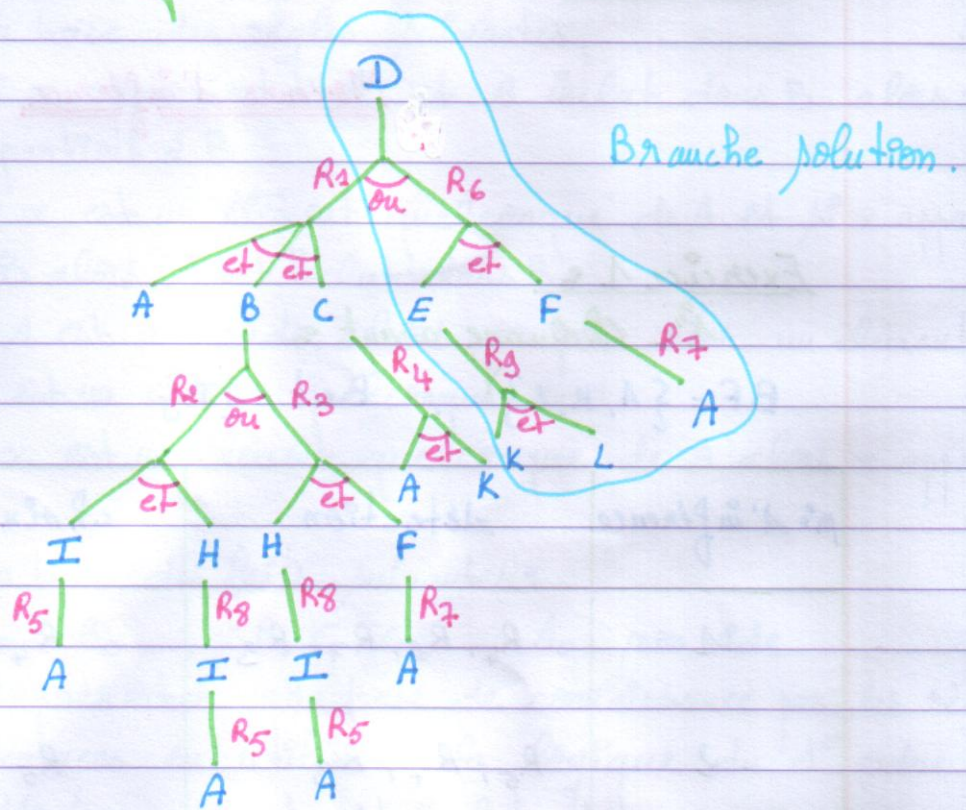 D
Branche solution.
R1 ou R6
et et et
A B C E F
R4 R9 R7
R2 ou R3 A
et et
K L
A K
et et
I H H F
R5 R8 R8 R7
A I I A
R5 R5
A A